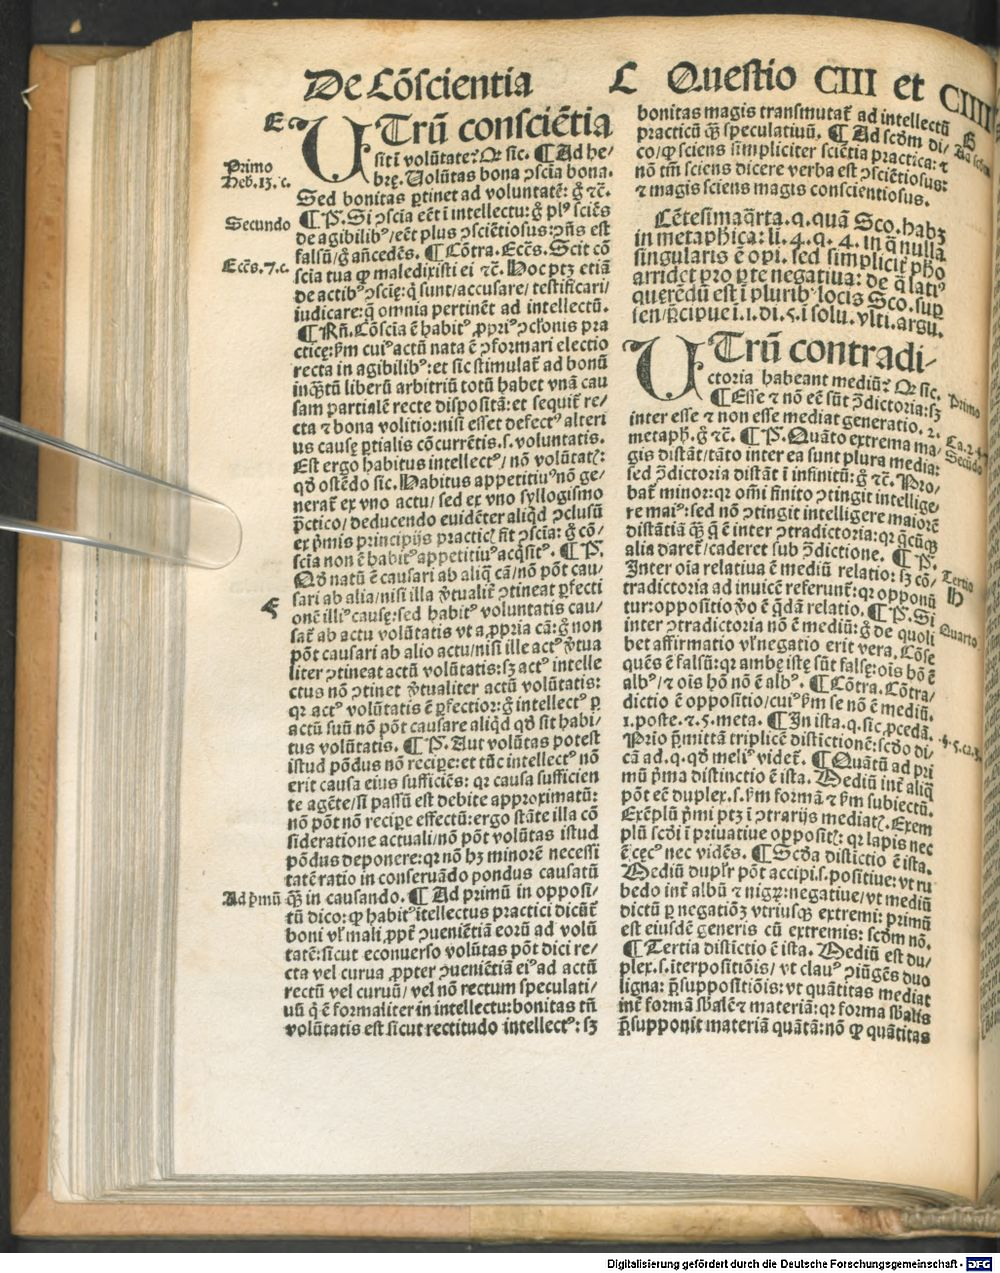 De Cōscientia C Questio CIII et CIIII
E
UTrū consciētia
sit ī volūtate? Qꝛ sic. ¶ Ad he-
Primo
Heb. 13. c.
brę. Uolūtas bona ↄscīa bona.
Sed bonitas ꝑtinet ad voluntatē: gͦ ⁊c̄.
Secundo
¶ P̄. Si ↄscia eēt ī intellectu: gͦ plꝰ sciēs
de agibilibꝰ/ eēt plus ↄsciētiosus: ↄn̄s est
falsū/ gͦ an̄cedēs. ¶ Cōtra. Eccēs. Scit cō
Eccēs. 7. c.
scia tua ꝙ maledixisti ei ⁊c̄. Hoc ptꝫ etiā
de actibꝰ ↄscię: q̄ sunt/ accusare/ testificari/
iudicare: q̄ omnia pertinēt ad intellectū.
¶ Rn̄. Cōscia ē habitꝰ ꝓpriꝰ ↄclonis pra
cticę: ẜm cuiꝰ actū nata ē ↄformari electio
recta in agibilibꝰ: et sic stimulat̄ ad bonū
inqͣ̄tū liberū arbitriū totū habet vnā cau
sam partialē recte dispositā: et sequit̄ re/
cta ⁊ bona volitio: nisi esset defectꝰ alteri
us causę ꝑtialis cōcurrētis. s. voluntatis.
Est ergo habitus intellectꝰ/ nō volūtatꝭ:
qd̄ ostēdo sic. Habitus appetitiuꝰ nō ge-
nerat̄ ex vno actu/ sed ex vno syllogismo
p̄ctico/ deducendo euidēter aliqd̄ ↄclusū
ex p̄mis principijs practicꝭ fit ↄscia: gͦ cō/
scia non ē habitꝰ appetitiuꝰ acq̄sitꝰ. ¶ P̄.
Qd̄ natū ē causari ab aliq̄ cā/ nō pōt cau/
F
sari ab alia/ nisi illa v̄tualit̄ ↄtineat ꝑfecti
onē illiꝰ causę: sed habitꝰ voluntatis cau/
sat̄ ab actu volūtatis vt a ꝓpria cā: gͦ non
pōt causari ab alio actu/ nisi ille actꝰ v̄tua
liter ↄtineat actū volūtatis: sꝫ actꝰ intelle
ctus nō ↄtinet v̄tualiter actū volūtatis:
qꝛ actꝰ volūtatis ē ꝑfectior: gͦ intellectꝰ ꝑ
actū suū nō pōt causare aliqd̄ qd̄ sit habi/
tus volūtatis. ¶ P̄. Aut volūtas potest
istud pōdus nō recipe: et tūc intellectꝰ nō
erit causa eius sufficiēs: qꝛ causa sufficien
te agēte/ si passū est debite approximatū:
nō pōt nō recipe effectū: ergo stāte illa cō
sideratione actuali/ nō pōt volūtas istud
pōdus deponere: qꝛ nō hꝫ minorē necessi
tatē ratio in conseruādo pondus causatū
Ad p̄mū
qͣ̄ in causando. ¶ Ad primū in opposi-
tū dico: ꝙ habitꝰ ītellectus practici dicūt̄
boni vl̓ mali ꝓpt̄ ↄueniētiā eorū ad volū
tatē: sicut econuerso volūtas pōt dici re/
cta vel curua ꝓpter ↄueniētiā eiꝰ ad actū
rectū vel curuū/ vel nō rectum speculati/
uū q̄ ē formaliter in intellectu: bonitas tn̄
volūtatis est sicut rectitudo intellectꝰ: sꝫ
bonitas magis transmutat̄ ad intellectū
practicū qͣ̄ speculatiuū. ¶ Ad scd̄m di/
G
Ad scd̄m
co/ ꝙ sciens simpliciter sciētia practica: ⁊
nō tm̄ sciens dicere verba est ↄsciētiosus:
⁊ magis sciens magis conscientiosus.
Cētesimaq̄rta. q. quā Sco. habꝫ
in metaph̄ica: li. 4. q. 4. in q̄ nulla
singularis ē opi. sed simplicit̄ ph̄o
arridet pro p̄te negatiua: de q̄ latiꝰ
querēdū est ī pluribꝰ locis Sco. suꝑ
sen/ p̄cipue i. 1. di. 5. i solu. vlti. argu.
UTrū contradi/
ctoria habeant mediū? Qꝛ sic.
Primo
¶ Esse ⁊ nō eē sūt ↄ̄dictoria: sꝫ
inter esse ⁊ non esse mediat generatio. 2.
Ca. 2. 4. 7
metaph̄. gͦ ⁊c̄. ¶ P̄. Quāto extrema ma/
Secūdo
gis distāt/ tāto inter ea sunt plura media:
sed ↄ̄dictoria distāt ī infinitū: gͦ ⁊c̄. Pro/
bat̄ minor: qꝛ om̄i finito ↄtingit intellige/
re maiꝰ: sed nō ↄtingit intelligere maiorē
distātiā qͣ̄ q̄ ē inter ↄtradictoria: qꝛ q̄cūqꝫ
alia daret̄/ caderet sub ↄ̄dictione. ¶ P̄.
Tertio
Inter oīa relatiua ē mediū relatio: sꝫ cō/
H
tradictoria ad inuicē referunt̄: qꝛ opponū
tur: oppositio v̄o ē q̄dā relatio. ¶ P̄. Si
Quarto
inter ↄtradictoria nō ē mediū: gͦ de quoli
bet affirmatio vl̓ negatio erit vera. Cōse
quēs ē falsū: qꝛ ambę istę sūt falsę: oīs hō ē
albꝰ/ ⁊ oīs hō nō ē albꝰ. ¶ Cōtra. Cōtra/
dictio ē oppositio/ cuiꝰ ẜm se nō ē mediū.
1. poste. ⁊. 5. meta. ¶ In ista. q. sic ꝓcedā.
4. 5. ca. 3.
Prio p̄mittā triplicē distictionē: scd̄o di/
cā ad. q. qd̄ meliꝰ videt̄. ¶ Quātū ad pri
mū p̄ma distinctio ē ista. Mediū int̄ aliq̄
pōt eē duplex. s. ẜm formā ⁊ ẜm subiectū.
Exēplū p̄mi ptꝫ ī ↄtrarijs mediatꝭ. Exem
plū scd̄i ī priuatiue oppositꝭ: qꝛ lapis nec
ē cęcꝰ nec vidēs. ¶ Scd̄a distictio ē ista.
Mediū duplr̄ pōt accipi. s. positiue: vt ru
bedo int̄ albū ⁊ nigꝝ: negatiue/ vt mediū
dictū ꝑ negatiōꝫ vtriusqꝫ extremi: primū
est eiusdē generis cū extremis: scd̄m nō.
¶ Tertia distictio ē ista. Mediū est du/
plex. s. īterpositiōis/ vt clauꝰ ↄiūgēs duo
ligna: p̄suppositiōis: vt quātitas mediat
int̄ formā sb̄alē ⁊ materiā: qꝛ forma sb̄alis
p̄supponit materiā quātā: nō ꝙ quātitas
Digitalisierung gefördert durch die Deutsche Forschungsgemeinschaft - DFG